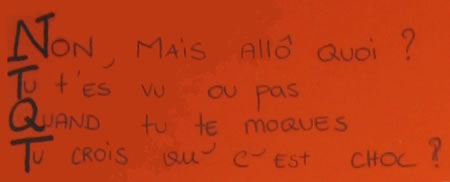 NON, MAIS Allô QUOI ?
TU t'ES VU OU PAS
QUAND tu tE MOQUES
TU CROIS QU' C'EST CHOC ?